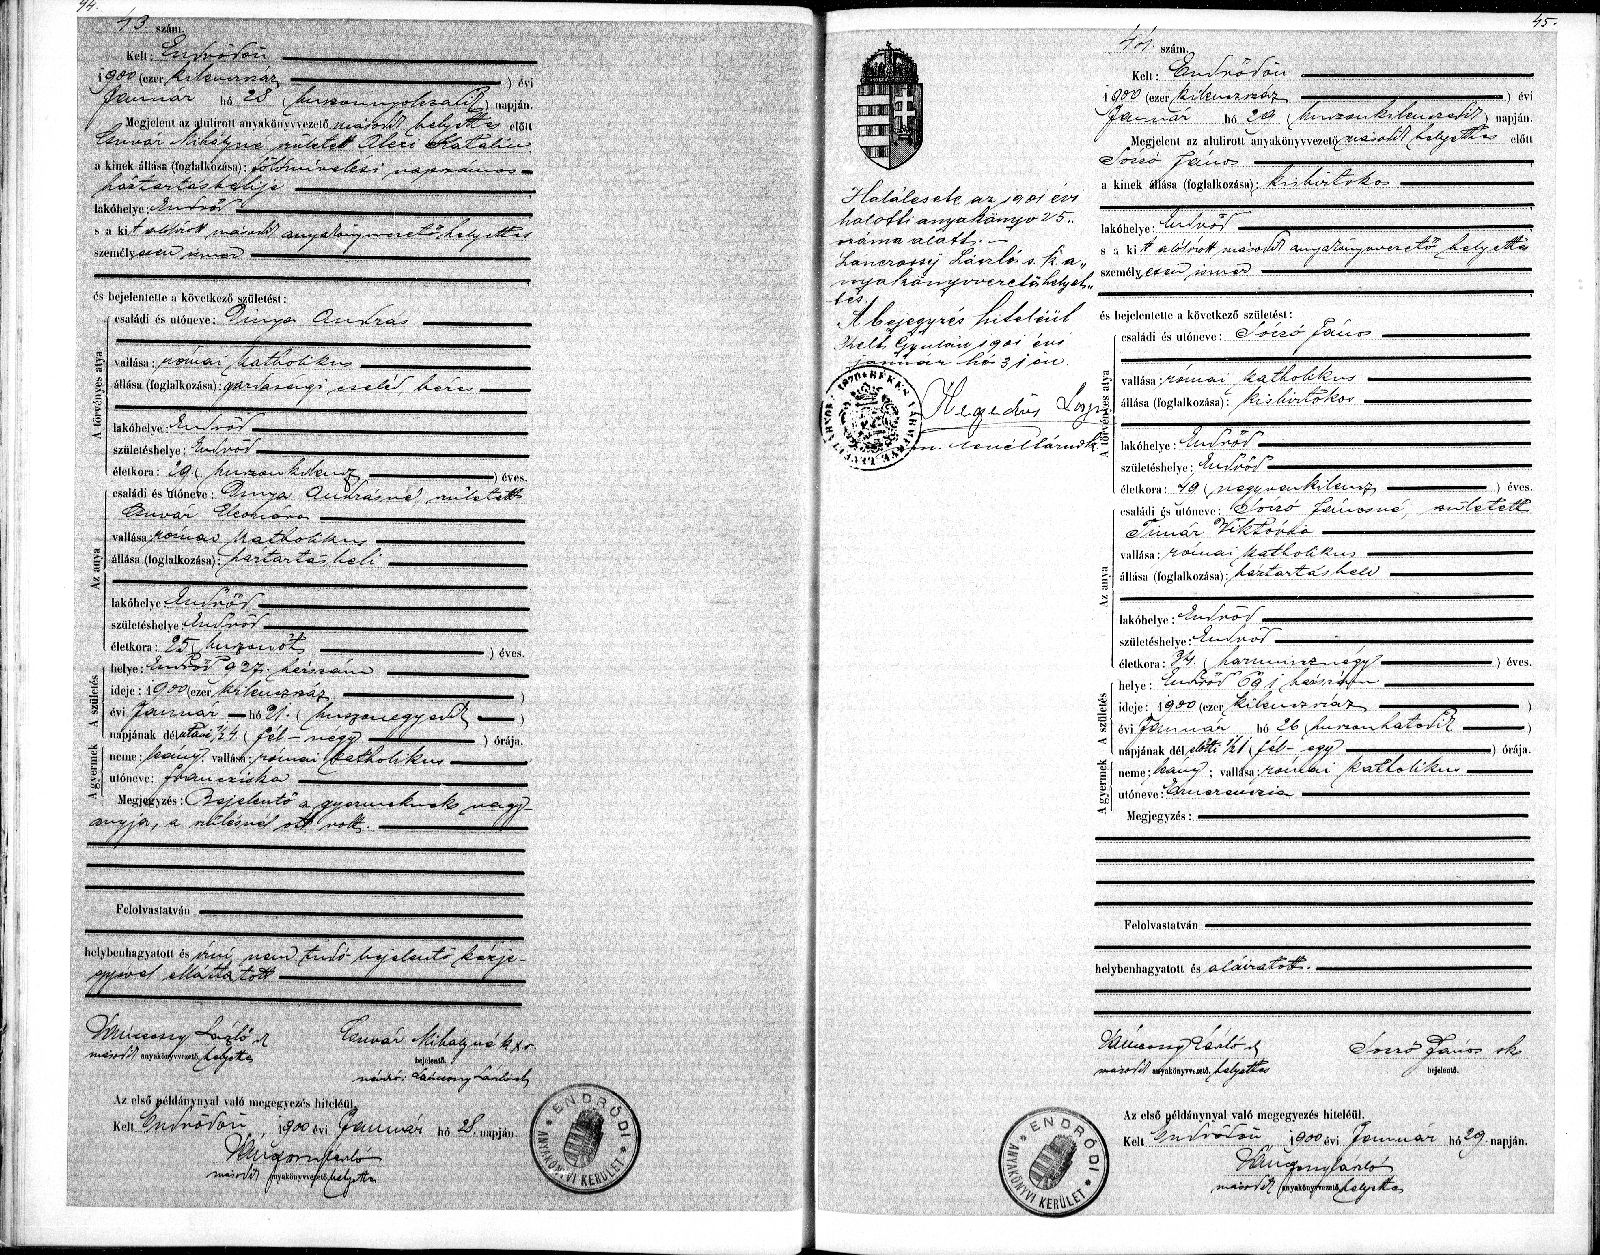 44.
43 szám.
Kelt: Endrődön
1900 (ezer kilenczszáz) évi
Január hó 28 (huszonnyolczadik) napján.
Megjelent az alulirott anyakönyvvezető második helyettes előtt
Csuvár Mihályné született Katalin
a kinek állása (foglalkozása): földmivelési napszámos
háztartásbelije
lakóhelye: Endrőd
s a kit alólirott második anyakönyvvezető helyettes
személyesen ismer
és bejelentette a következő születést:
A törvényes atya
családi és utóneve: Dinya András
vallása: római katholikus
állása (foglalkozása): gazdasági cseléd, béres
lakóhelye: Endrőd
születéshelye: Endrőd
életkora: 29 (huszonkilencz) éves.
Az anya
családi és utóneve: Dinya Andrásné, született
Csuvár Eleonóra
vallása: római katholikus
állása (foglalkozása): háztartásbeli
lakóhelye: Endrőd
születéshelye: Endrőd
életkora: 25 (huszonöt) éves.
A születés
helye: Endrőd 927. házszám
ideje: 1900 (ezer kilenczszáz)
évi Január hó 21. (huszonegyedik)
napjának délutáni 1/24 (fél-négy) órája.
A gyermek
neme: leány; vallása: római katholikus
utóneve: Francziska
Megjegyzés: Bejelentő a gyermeknek nagy-
anyja, a szülésnél ott volt.
Felolvastatván
helybenhagyatott és irni nem tudó bejelentő kézje-
gyével elláttatott
Váncsony László sk
második anyakönyvvezető, helyettes
Csuvár Mihályné k.x.v.
bejelentő.
névíró: Váncsony László sk
Az első példánynyal való megegyezés hiteléül.
Kelt Endrődön, 1900 évi Január hó 28. napján.
Váncsony László
második anyakönyvvezető helyettes
ENDRŐDI ANYAKÖNYVI KERÜLET
45.
44 szám.
Kelt: Endrődön
1900 (ezer kilenczszáz) évi
Január hó 29 (huszonkilenczedik) napján.
Megjelent az alulirott anyakönyvvezető második helyettes előtt
Soczó János
a kinek állása (foglalkozása): kisbirtokos
lakóhelye: Endrőd
s a kit alólirott második anyakönyvvezető helyettes
személyesen ismer
és bejelentette a következő születést:
A törvényes atya
családi és utóneve: Soczó János
vallása: római katholikus
állása (foglalkozása): kisbirtokos
lakóhelye: Endrőd
születéshelye: Endrőd
életkora: 49 (negyvenkilencz) éves.
Az anya
családi és utóneve: Soczó Jánosné, született
Timár Viktória
vallása: római katholikus
állása (foglalkozása): háztartásbeli
lakóhelye: Endrőd
születéshelye: Endrőd
életkora: 34 (harmincznégy) éves.
A születés
helye: Endrőd 691 házszám
ideje: 1900 (ezer kilenczszáz)
évi Január hó 26 (huszonhatodik)
napjának délelőtti 1/21 (fél-egy) órája.
A gyermek
neme: leány; vallása: római katholikus
utóneve: Emerenczia
Megjegyzés:
Felolvastatván
helybenhagyatott és aláiratott.
Váncsony László sk
második anyakönyvvezető, helyettes
Soczó János sk
bejelentő.
Az első példánynyal való megegyezés hiteléül.
Kelt Endrődön, 1900 évi Január hó 29. napján.
Váncsony László
második anyakönyvvezető helyettes
ENDRŐDI ANYAKÖNYVI KERÜLET
Halálesete az 1901 évi
halotti anyakönyv 25.
száma alatt. -
László s.k a-
nyakönyvvezető helyet-
tes.
A bejegyzés hiteléül
Kelt Gyulán 1901 évi
január hó 31 én.
Hegedüs